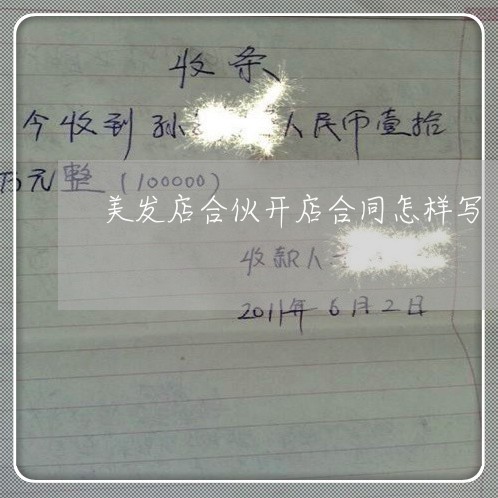 收条
今收到孙人民币壹拾
万元整(100000)
美发店合伙开店合同怎样写
收款人
2011年6月2日